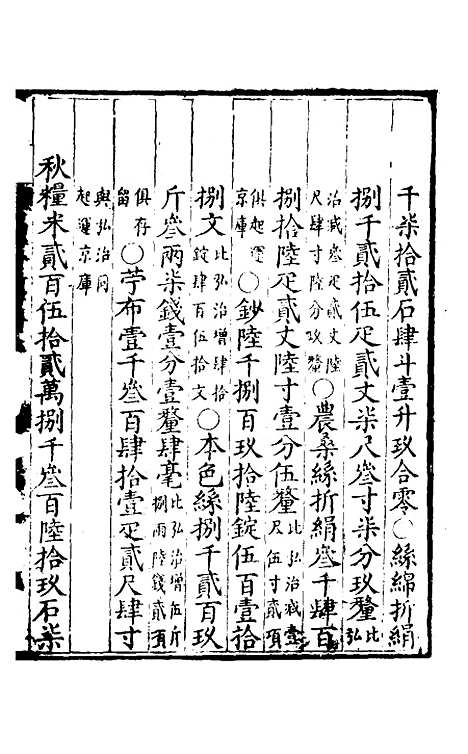 千柒拾貳石肆斗壹升玖合零〇絲綿折絹
捌千貳拾伍疋貳丈柒尺叄寸柒分玖釐比弘
治減叄疋貳丈陸尺肆寸陸分玖釐〇農桑絲折絹叄千肆百
捌拾陸疋貳丈陸寸壹分伍釐比弘治減壹尺伍寸貳項
俱起運京庫〇鈔陸千捌百玖拾陸錠伍百壹拾
捌文比弘治增肆拾錠肆百伍拾文〇本色絲捌千貳百玖
斤叄兩柒錢壹分壹釐肆毫比弘治增伍斤捌兩陸錢貳項
俱存留〇苧布壹千叄百肆拾壹疋貳尺肆寸
與弘治同起運京庫
秋糧米貳百伍拾貳萬捌千叄百陸拾玖石柒